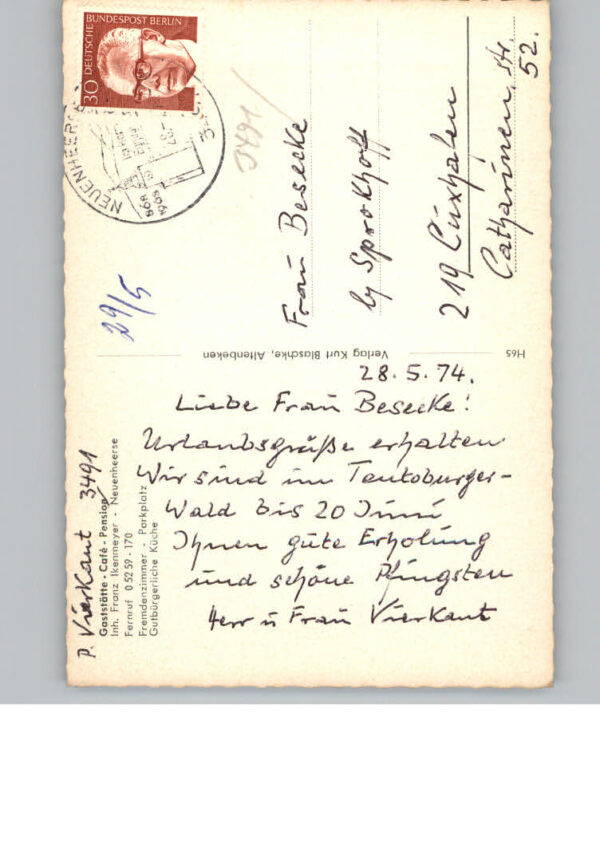 30 DEUTSCHE BUNDESPOST BERLIN
NEUENHEERSE
868
1968
3491
Frau Besecke
by Sprokhoff
219 Cuxhafen
Catharinen. str.
52.
29/5
Verlag Kurt Blaschke, Altenbeken
H65
28.5.74.
Liebe Frau Besecke!
Urlaubsgrüße erhalten
Wir sind im Teutoburger-
Wald bis 20 Juni
Ihnen gute Erholung
und schöne Pfingsten
Herr u Frau Vierkant
P. Vierkant 3491
Gaststätte - Café - Pension
Inh. Franz Ikenmeyer - Neuenheerse
Fernruf 0 52 59 - 170
Fremdenzimmer - Parkplatz
Gutbürgerliche Küche